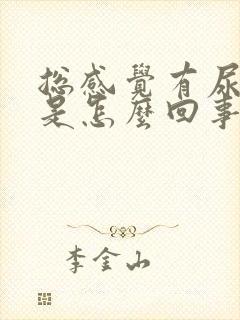 总感覺有尿
是怎麼回事
李金山